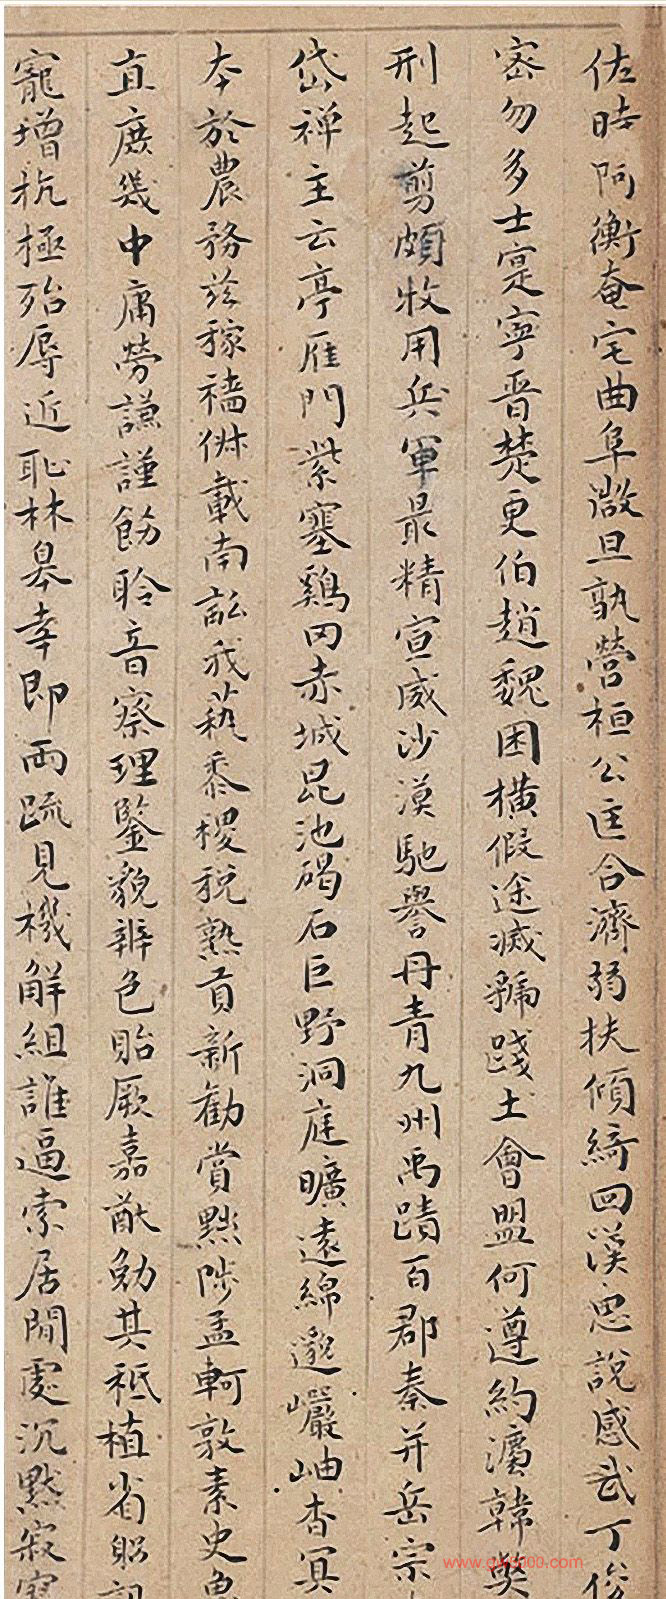 佐時阿衡奄宅曲阜微旦孰營桓公匡合濟弱扶傾綺回漢惠說感武丁俊
密勿多士寔寧晋楚更伯趙魏困橫假途滅虢踐土會盟何遵約灋韓獘
刑起剪頗牧用兵軍最精宣威沙漠馳譽丹青九州禹蹟百郡秦并岳宗
岱禅主云亭雁門紫塞鷄田赤城昆池碣石巨野洞庭曠遠綿邈巖岫杳冥
本於農務茲稼穡俶載南畝我藝黍稷稅熟貢新勸賞黜陟孟軻敦素史魚
直庶幾中庸勞謙謹飭聆音察理鑒貌辨色貽厥嘉猷勉其祗植省躬譏
寵增抗極殆辱近恥林皋幸即兩疏見機解組誰逼索居閒處沉默寂寥